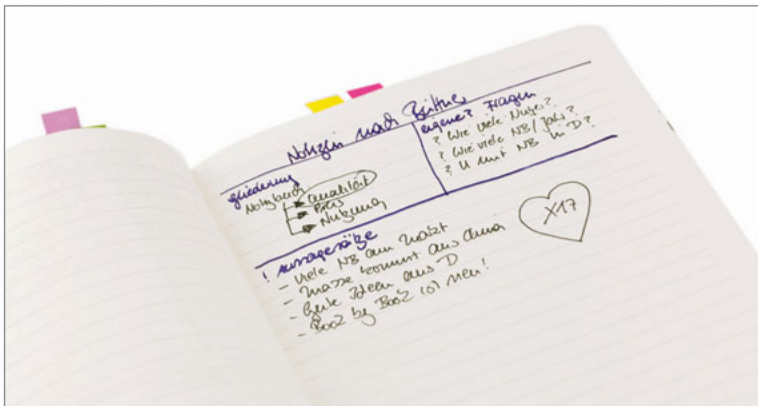 Notizen nach Bittner
gliederung
Notizbuch
Qualität
Preis
Nutzung
eigene? Fragen
? Wie viele Nutzer?
? Wie viele NB / Jahr?
? U mit NB in D?
! Aussagesätze
- viele NB am Markt
- Masse kommt aus China
- gute Ideen aus D
- Book by Book ist neu!
X17